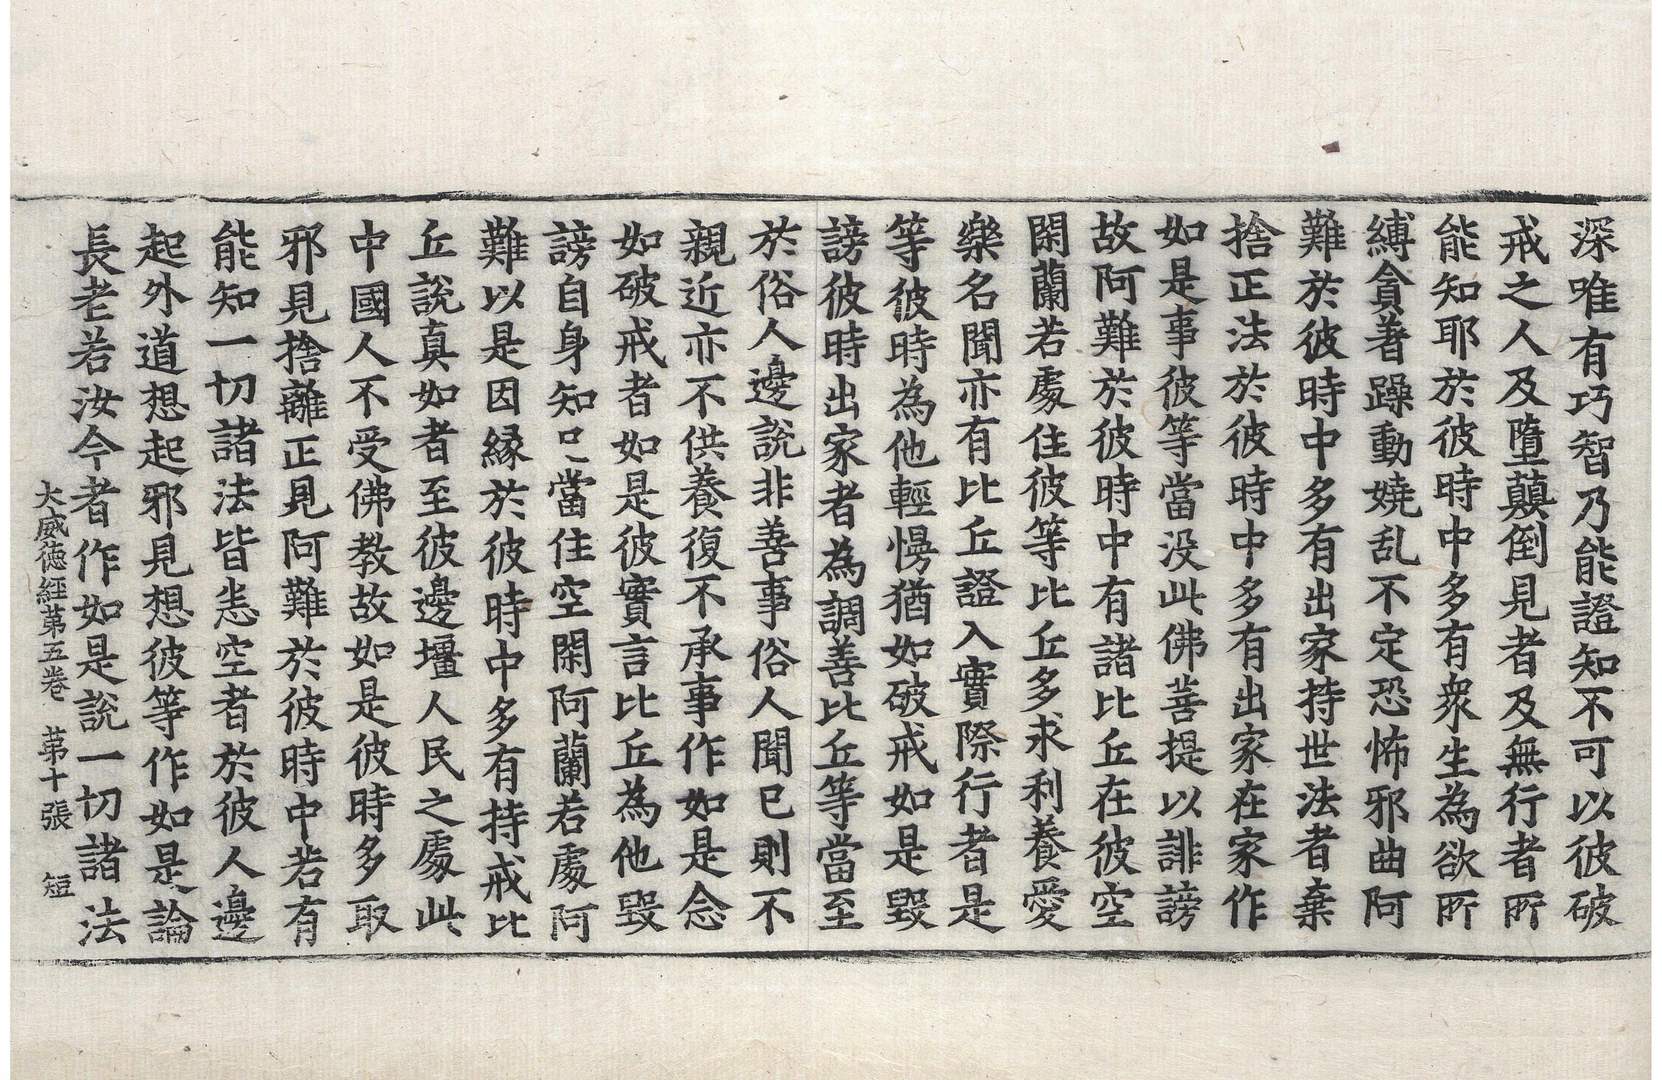 深唯有巧智乃能證知不可以彼破
戒之人及墮蘔倒見者及無行者所
能知耶於彼時中多有衆生為欲所
縛貪著躁動嬈乱不定恐怖邪曲阿
難於彼時中多有出家持世法者棄
捨正法於彼時中多有出家在家作
如是事彼等當没此佛菩提以誹謗
故阿難於彼時中有諸比丘在彼空
閑蘭若處住彼等比丘多求利養愛
樂名聞亦有比丘證入實際行者是
等彼時為他輕慢猶如破戒如是毀
謗彼時出家者為調善比丘等當至
於俗人邊説非善事俗人聞已則不
親近亦不供養復不承事作如是念
如破戒者如是彼實言比丘為他毀
謗自身知已當住空閑阿蘭若處阿
難以是因縁於彼時中多有持戒比
丘説真如者至彼邊壃人民之處此
中國人不受佛教故如是彼時多取
邪見捨離正見阿難於彼時中若有
能知一切諸法皆悉空者於彼人邊
起外道想起邪見想彼等作如是論
長老若汝今者作如是説一切諸法
大威徳經第五卷　第十張　短